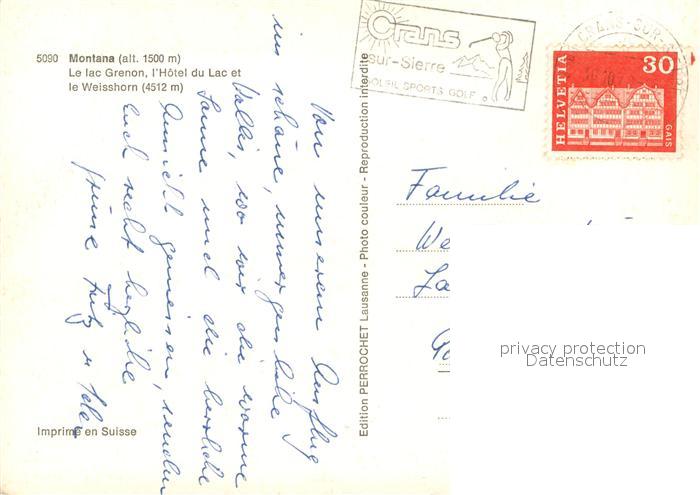 5090 Montana (alt. 1500 m)
Le lac Grenon, l'Hôtel du Lac et
le Weisshorn (4512 m)
Von unserem Ausflug
ins schöne, unvergessliche
Wallis, wo wir die warme
Sonne und die herrliche
Aussicht geniessen, senden
Euch recht herzliche
Grüsse Fritz u
Imprimé en Suisse
Edition PERROCHET Lausanne - Photo couleur - Reproduction interdite
Crans
sur-Sierre
SOLEIL SPORTS GOLF
CRANS-SUR-SIERRE
HELVETIA
30
GAIS
Familie
We
privacy protection
Datenschutz